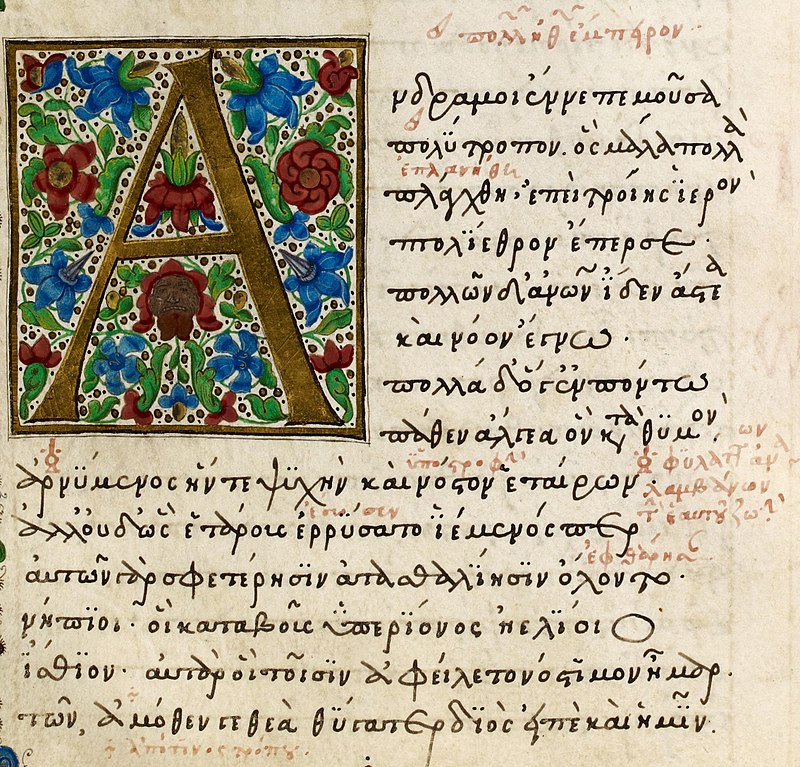 Ἄνδρα μοι ἔννεπε μοῦσα
πολύτροπον. ὃς μάλα πολλὰ
ἐπλανήθη
πλάγχθη· ἐπεὶ τροίης ϊερὸν
πτολϊεθρον ἔπερσε·
πολλῶν δ' ἀνῶν ἴδεν ἄστεα
καὶ νόον ἔγνω·
πολλὰ δ' ὅγ' ἐν πόντω
πάθεν ἄλγεα ὃν κατὰ θϋμὸν,
ὑποστροφὴν
ἀρνύμενος ἥν τε ψϋχὴν καὶ νόστον ἑταίρων·
ἔσωσεν
ἀλλ' οὐδ' ὧς ἑτάροις ἐρρύσατο ϊέμενός περ
ἐφθάρησαν
αυτῶν γὰρ σφετέρησϊν ἀτασθαλίησϊν ὄλοντο·
νήπϊοι· οἳ κατα βοῦς ὑπερϊονος ἠελίοιο
ἤσθϊον· αυτὰρ ὁ τοῖσϊν ἀφείλετο νόστιμον ἦμαρ·
τῶν, ἁμόθεν γε θεὰ θύγατερ δϊὸς εἰπὲ καὶ ἡμῖν.
ἀπό τινος τρόπου·